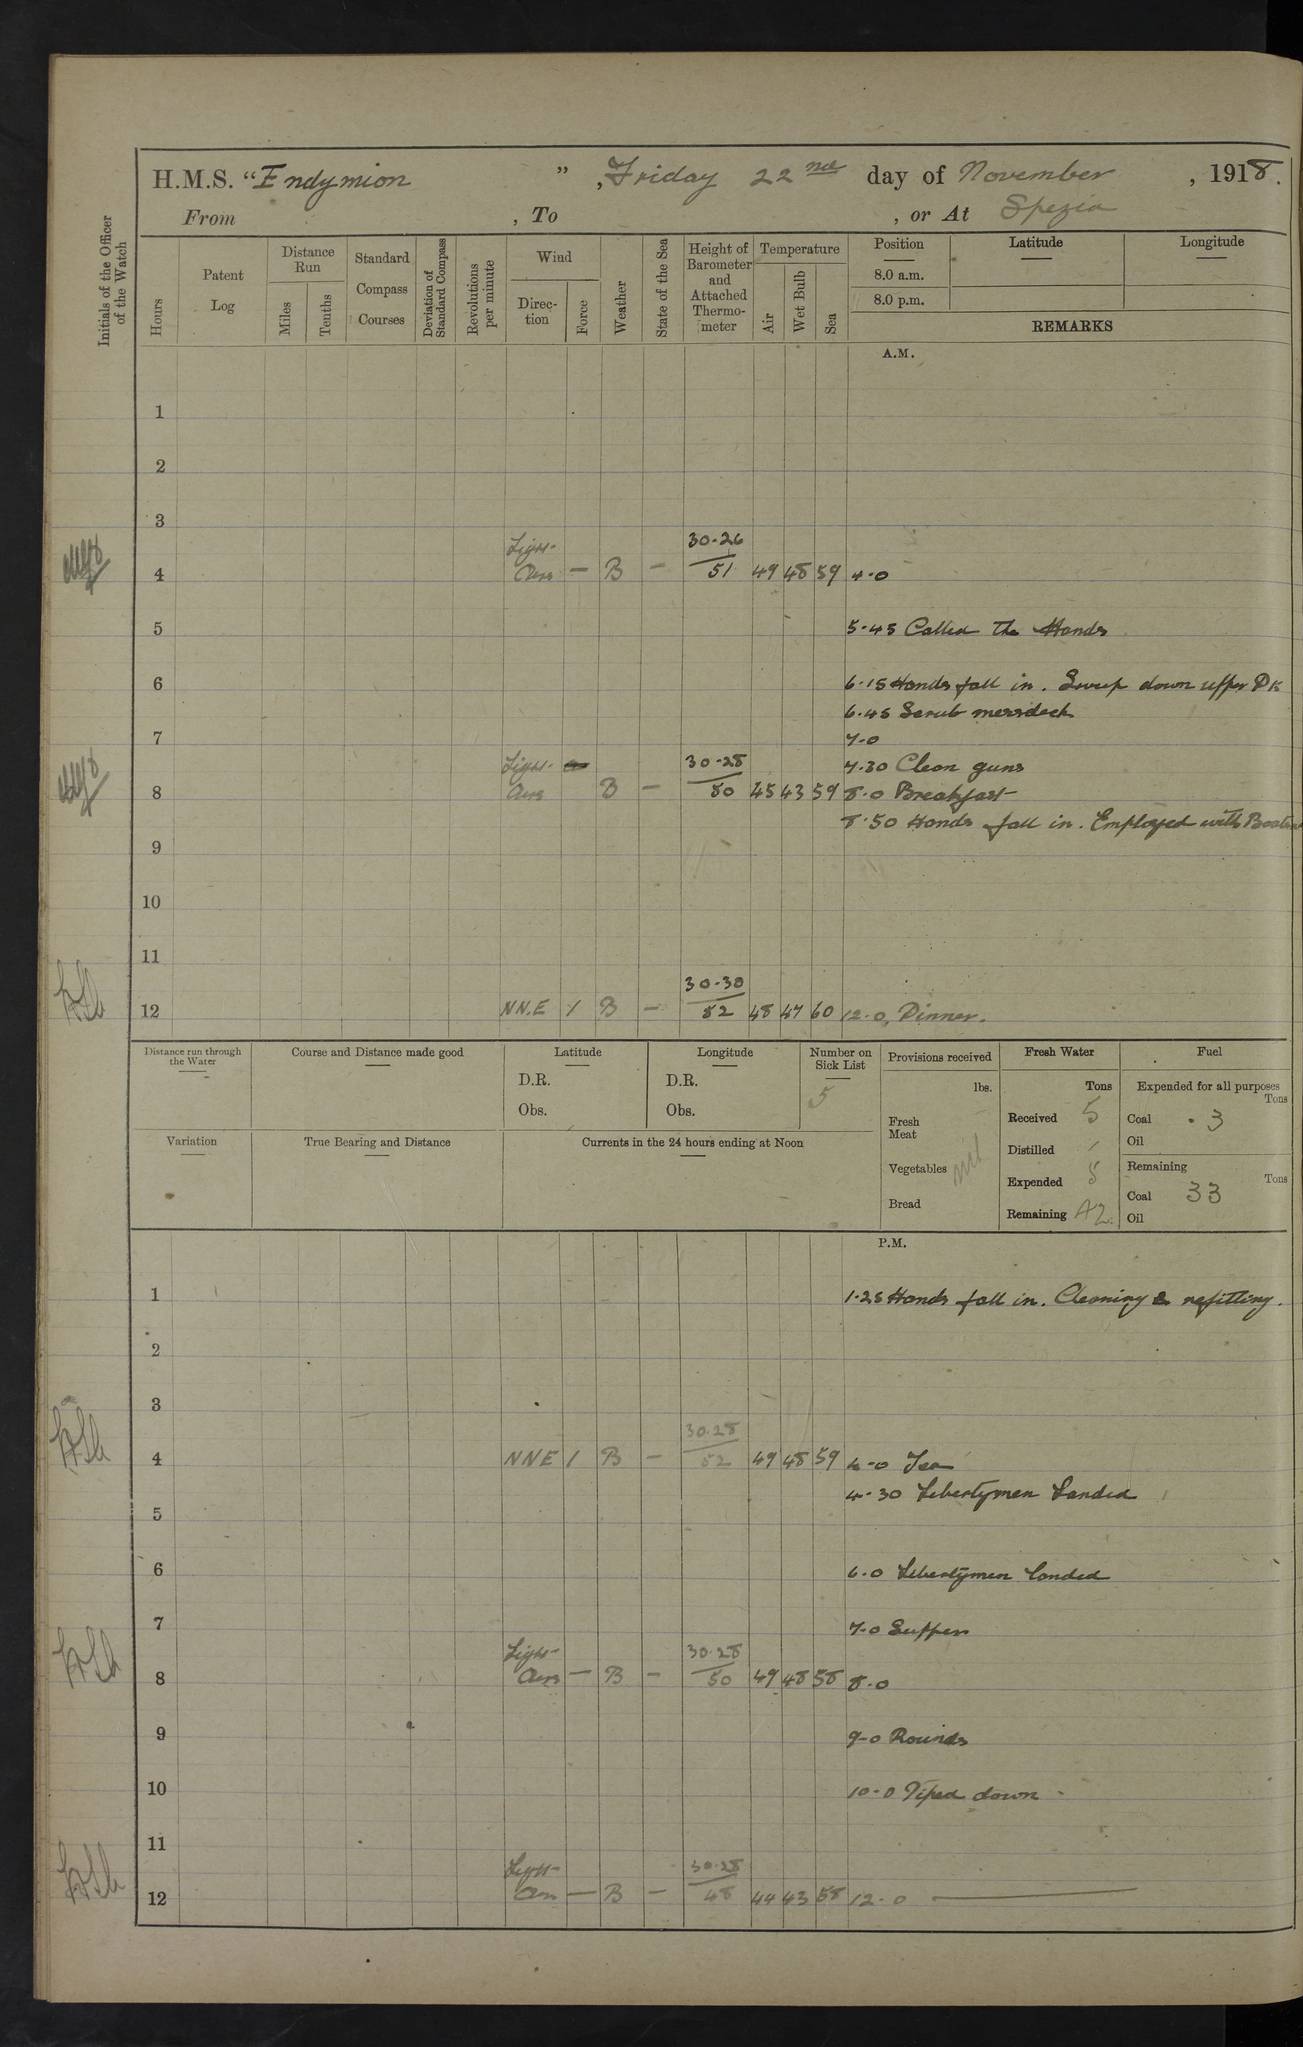 H.M.S. "Endymion", Friday 22nd day of November, 1918.
From , To , or At Spezia
Initials of the Officer of the Watch
Hours
Patent Log
Distance Run
Miles
Tenths
Standard Compass Courses
Deviation of Standard Compass
Revolutions per minute
Wind
Direction
Force
Weather
State of the Sea
Height of Barometer and Attached Thermometer
Temperature
Air
Wet Bulb
Sea
Position
8.0 a.m.
8.0 p.m.
Latitude
Longitude
REMARKS
A.M.
1
2
3
Light 30-26
4 Airs — B — 51 49 48 59 4-0
5 5-45 Called the Hands
6 6-15 Hands fall in. Sweep down upper Dk
6-45 Scrub messdeck
7 7-0
Light 30-28 7-30 Clean guns
8 Airs B — 50 45 43 59 8-0 Breakfast
8-50 Hands fall in. Employed with
9
10
11
30-30
12 NN.E 1 B — 52 48 47 60 12-0 Dinner.
Distance run through the Water
Course and Distance made good
Latitude
D.R.
Obs.
Longitude
D.R.
Obs.
Number on Sick List
5
Variation
True Bearing and Distance
Currents in the 24 hours ending at Noon
Provisions received
lbs.
Fresh Meat
Vegetables nil
Bread
Fresh Water
Tons
Received 5
Distilled
Expended 5
Remaining 42
Fuel
Expended for all purposes
Tons
Coal · 3
Oil
Remaining
Tons
Coal 33
Oil
P.M.
1 1-25 Hands fall in. Cleaning & refitting.
2
3
30.28
4 NNE 1 B — 52 49 48 59 4-0 Tea
4-30 Libertymen Landed
5
6 6-0 Libertymen landed
7 7-0 Supper
Light 30.28
8 Airs — B — 50 49 48 58 8-0
9 9-0 Rounds
10 10-0 Piped down
11
Light 30.28
12 Airs — B — 48 44 43 58 12-0